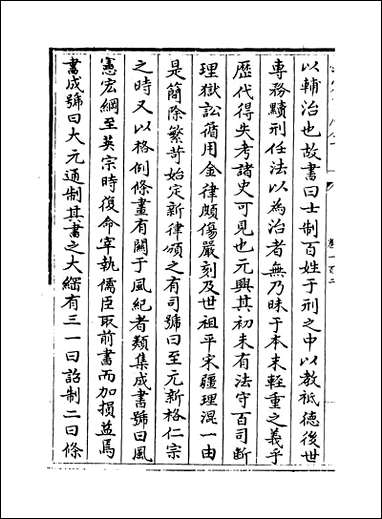 以輔治也故書曰士制百姓于刑之中以教祗德後世
專務黷刑任法以為治者無乃昧于本末輕重之義乎
歴代得失考諸史可見也元興其初未有法守百司斷
理獄訟循用金律頗傷嚴刻及世祖平宋疆理混一由
是簡除繁苛始定新律頒之有司號曰至元新格仁宗
之時又以格例條畫有關于風紀者類集成書號曰風
憲宏綱至英宗時復命宰執儒臣取前書而加損益焉
書成號曰大元通制其書之大綱有三一曰詔制二曰條